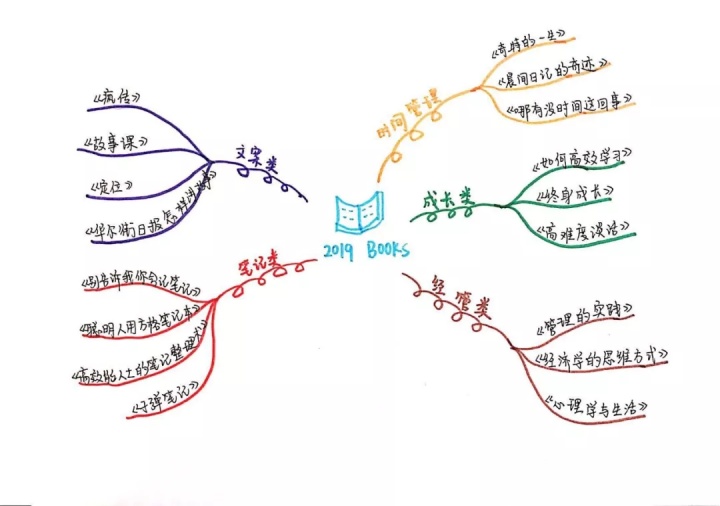 2019 BOOKS
时间管理
《奇特的一生》
《晨间日记的奇迹》
《哪有没时间这回事》
成长类
《如何高效学习》
《终身成长》
《高难度谈话》
经管类
《管理的实践》
《经济学的思维方式》
《心理学与生活》
文案类
《疯传》
《故事课》
《定位》
《华尔街日报怎样讲故事》
笔记类
《别告诉我你会记笔记》
《聪明人用方格笔记本》
《高效能人士的笔记整理术》
《子弹笔记》